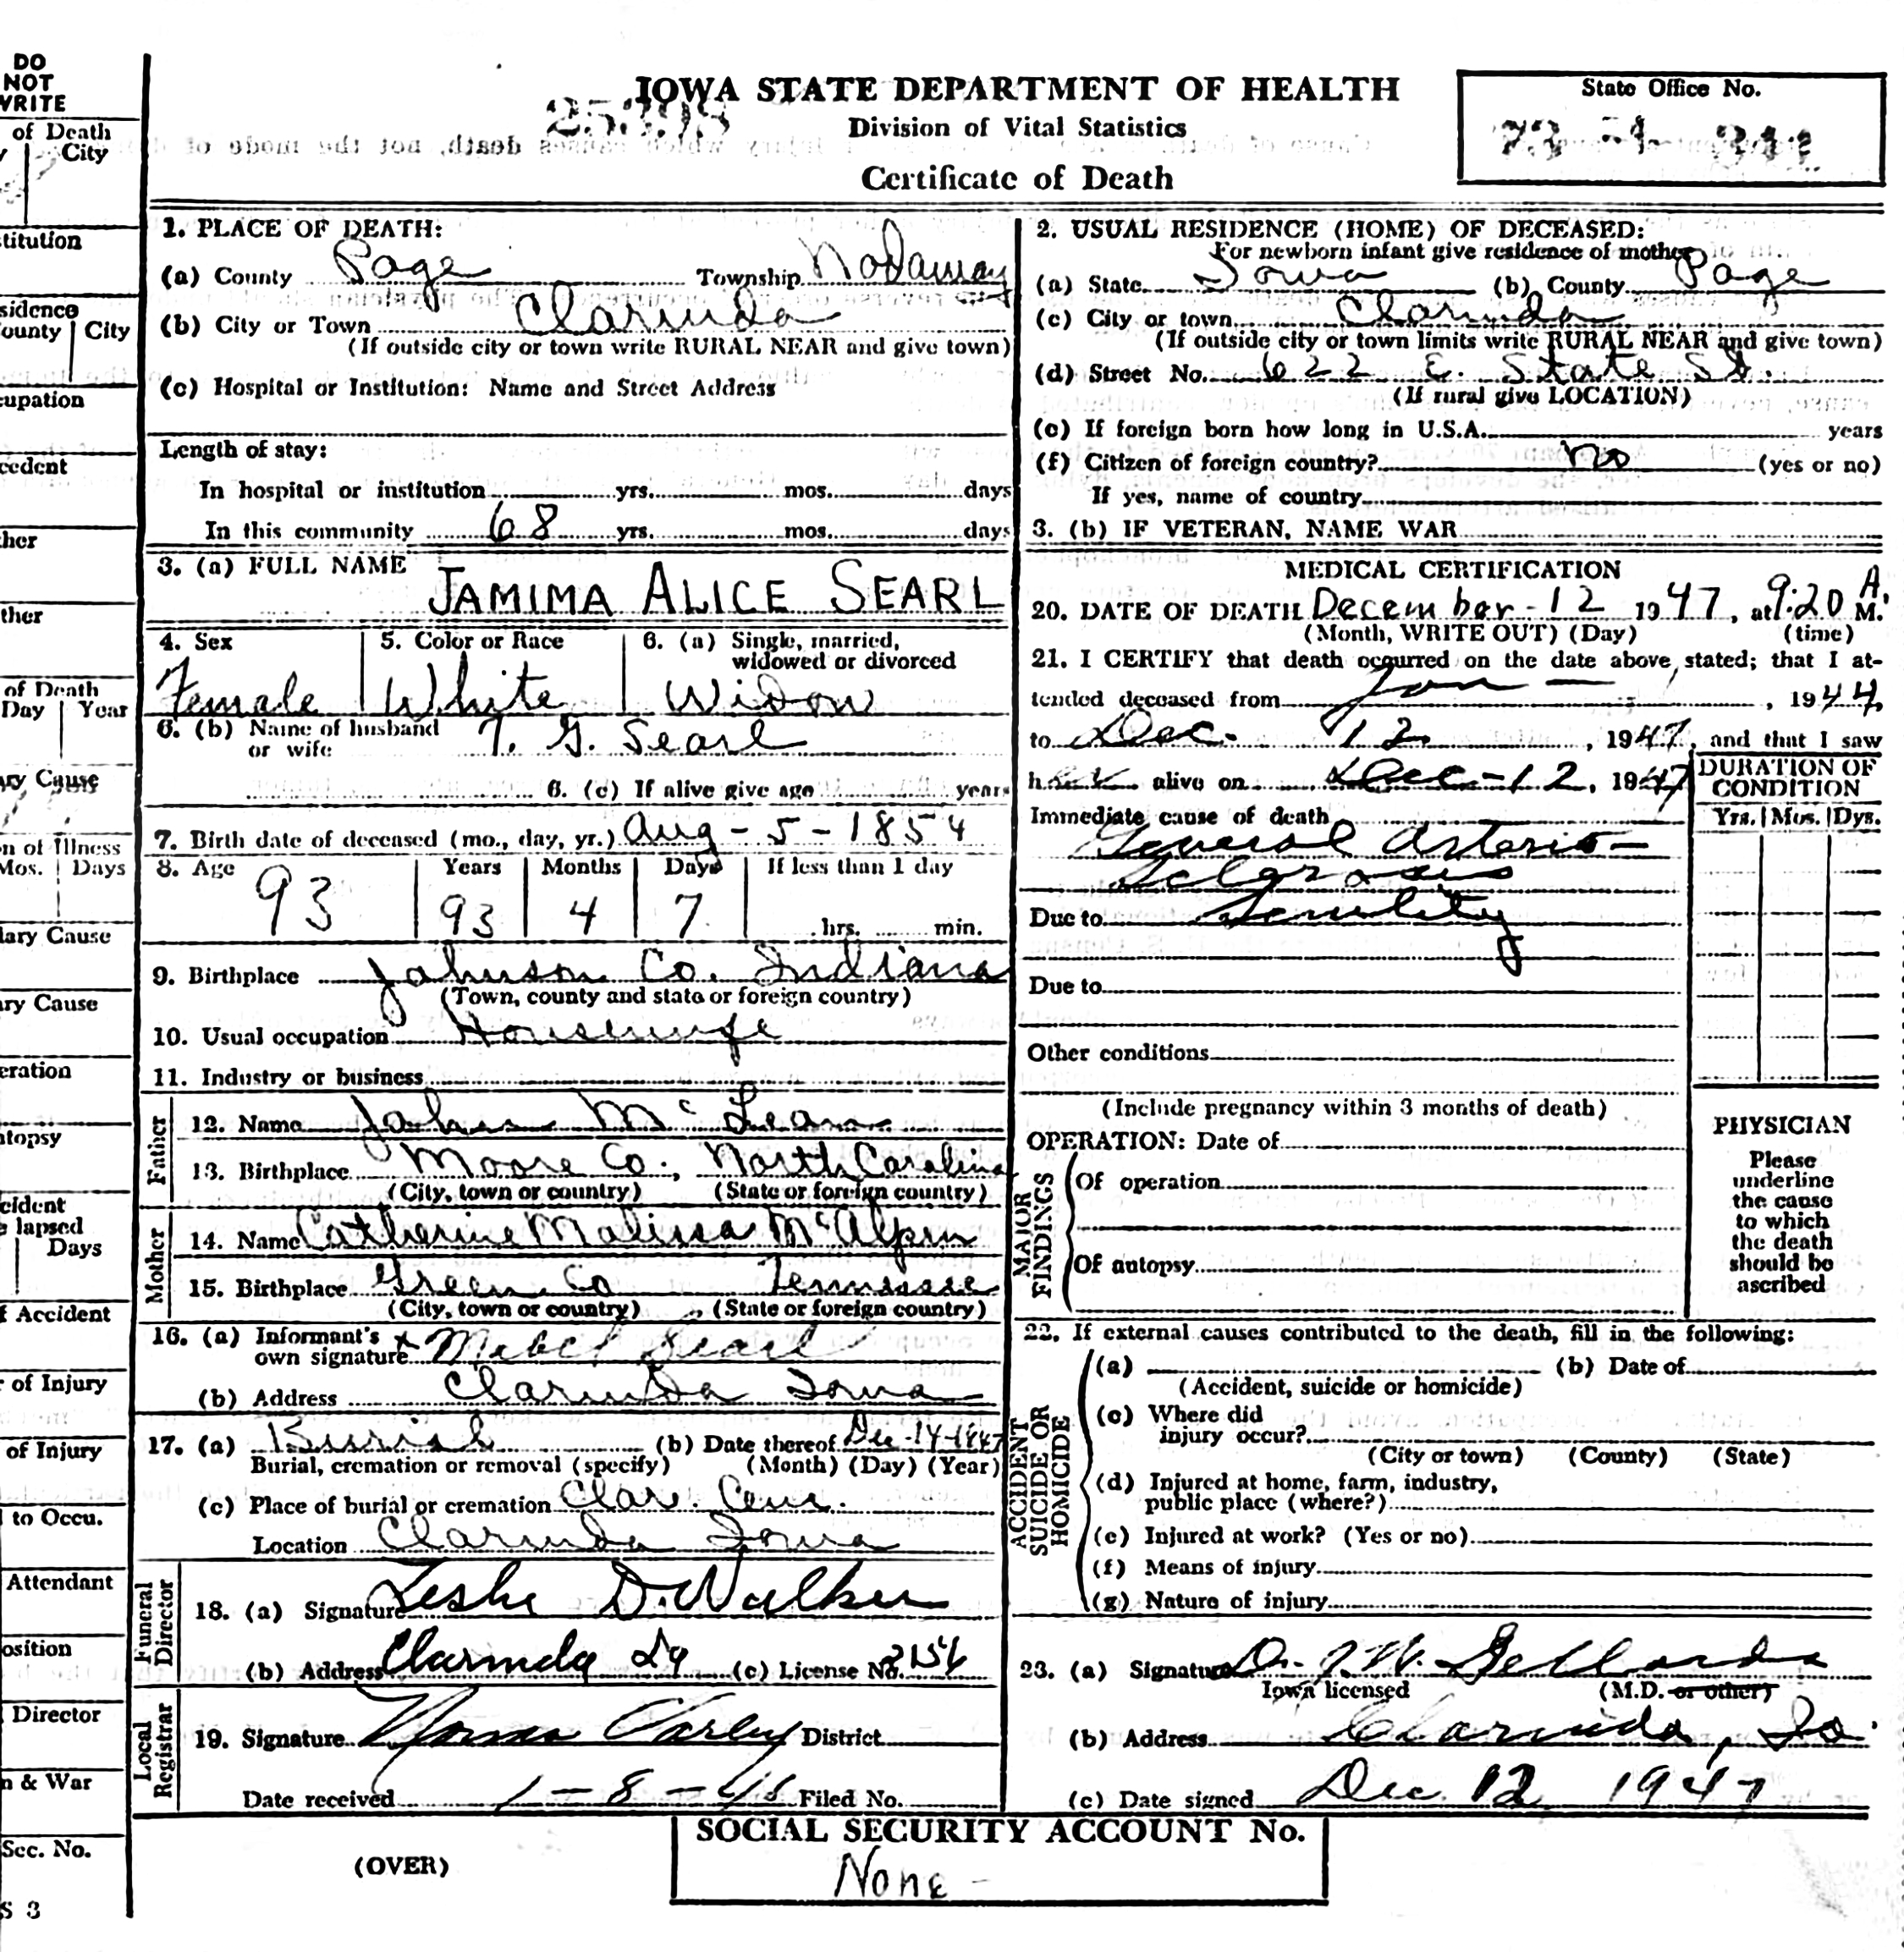 DO
NOT
WRITE
of Death
City
stitution
sidence
County City
cupation
cedent
ther
ther
of Death
Day Year
ary Cause
n of Illness
Mos. Days
dary Cause
ary Cause
eration
utopsy
cident
e lapsed
Days
f Accident
r of Injury
of Injury
to Occu.
Attendant
osition
Director
n & War
Sec. No.
S 3
IOWA STATE DEPARTMENT OF HEALTH
Division of Vital Statistics
Certificate of Death
State Office No.
1. PLACE OF DEATH:
(a) County Page Township Nodaway
(b) City or Town Clarinda
(If outside city or town write RURAL NEAR and give town)
(c) Hospital or Institution: Name and Street Address
Length of stay:
In hospital or institution yrs. mos. days
In this community 68 yrs. mos. days
3. (a) FULL NAME JAMIMA ALICE SEARL
4. Sex 5. Color or Race 6. (a) Single, married,
widowed or divorced
Female White Widow
6. (b) Name of husband
or wife T. G. Searl
6. (c) If alive give age years
7. Birth date of deceased (mo., day, yr.) Aug - 5 - 1854
8. Age Years Months Days If less than 1 day
93 93 4 7 hrs. min.
9. Birthplace Johnson Co. Indiana
(Town, county and state or foreign country)
10. Usual occupation Housewife
11. Industry or business
Father
12. Name John McLean
13. Birthplace Moore Co., North Carolina
(City, town or country) (State or foreign country)
Mother
14. Name Catherine Malissa McAlpin
15. Birthplace Green Co Tennessee
(City, town or country) (State or foreign country)
16. (a) Informant's
own signature x Mabel Searl
(b) Address Clarinda Iowa
17. (a) Burial (b) Date thereof Dec-14-1947
Burial, cremation or removal (specify) (Month) (Day) (Year)
(c) Place of burial or cremation Clar. Cem.
Location Clarinda Iowa
Funeral
Director
18. (a) Signature Leslie D. Walker
(b) Address Clarinda Ia (c) License No. 2156
Local
Registrar
19. Signature Carley District
Date received 1-8-48 Filed No.
(OVER)
2. USUAL RESIDENCE (HOME) OF DECEASED:
For newborn infant give residence of mother
(a) State Iowa (b) County Page
(c) City or town Clarinda
(If outside city or town limits write RURAL NEAR and give town)
(d) Street No. 622 E. State St.
(If rural give LOCATION)
(e) If foreign born how long in U.S.A. years
(f) Citizen of foreign country? no (yes or no)
If yes, name of country
3. (b) IF VETERAN, NAME WAR
MEDICAL CERTIFICATION
20. DATE OF DEATH December-12 1947, at 9:20 A.M.
(Month, WRITE OUT) (Day) (time)
21. I CERTIFY that death occurred on the date above stated; that I at-
tended deceased from Jan — , 1944,
to Dec. 12 , 1947, and that I saw
her alive on Dec-12, 1947
DURATION OF
CONDITION
Yrs. Mos. Dys.
Immediate cause of death
General Arterio-
Sclerosis
Due to Senility
Due to
Other conditions
(Include pregnancy within 3 months of death)
MAJOR
FINDINGS
OPERATION: Date of
Of operation
Of autopsy
PHYSICIAN
Please
underline
the cause
to which
the death
should be
ascribed
22. If external causes contributed to the death, fill in the following:
ACCIDENT
SUICIDE OR
HOMICIDE
(a) (b) Date of
(Accident, suicide or homicide)
(c) Where did
injury occur?
(City or town) (County) (State)
(d) Injured at home, farm, industry,
public place (where?)
(e) Injured at work? (Yes or no)
(f) Means of injury
(g) Nature of injury
23. (a) Signature Dr.
Iowa licensed (M.D. or other)
(b) Address Clarinda, Io.
(c) Date signed Dec 12 1947
SOCIAL SECURITY ACCOUNT No.
None -